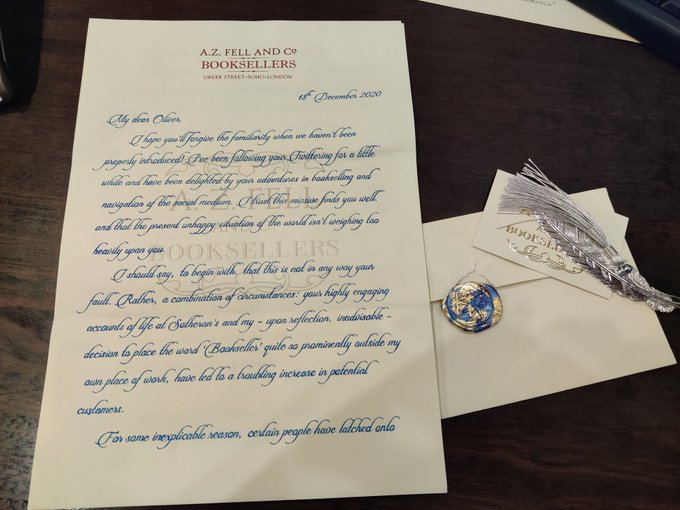 A.Z. FELL AND Co
BOOKSELLERS
GREEK STREET • SOHO • LONDON
18th December 2020
My dear Oliver,
I hope you'll forgive the familiarity when we haven't been
properly introduced! I've been following your Twittering for a little
while and have been delighted by your adventures in bookselling and
navigation of the social medium. I trust this missive finds you well,
and that the present unhappy situation of the world isn't weighing too
heavily upon you.
I should say, to begin with, that this is not in any way your
fault. Rather, a combination of circumstances: your highly engaging
accounts of life at Sotheran's and my - upon reflection, inadvisable -
decision to place the word 'Bookseller' quite so prominently outside my
own place of work, have led to a troubling increase in potential
customers.
For some inexplicable reason, certain people have latched onto
A.Z. FELL
BOOKSELLERS
BOOKSEL